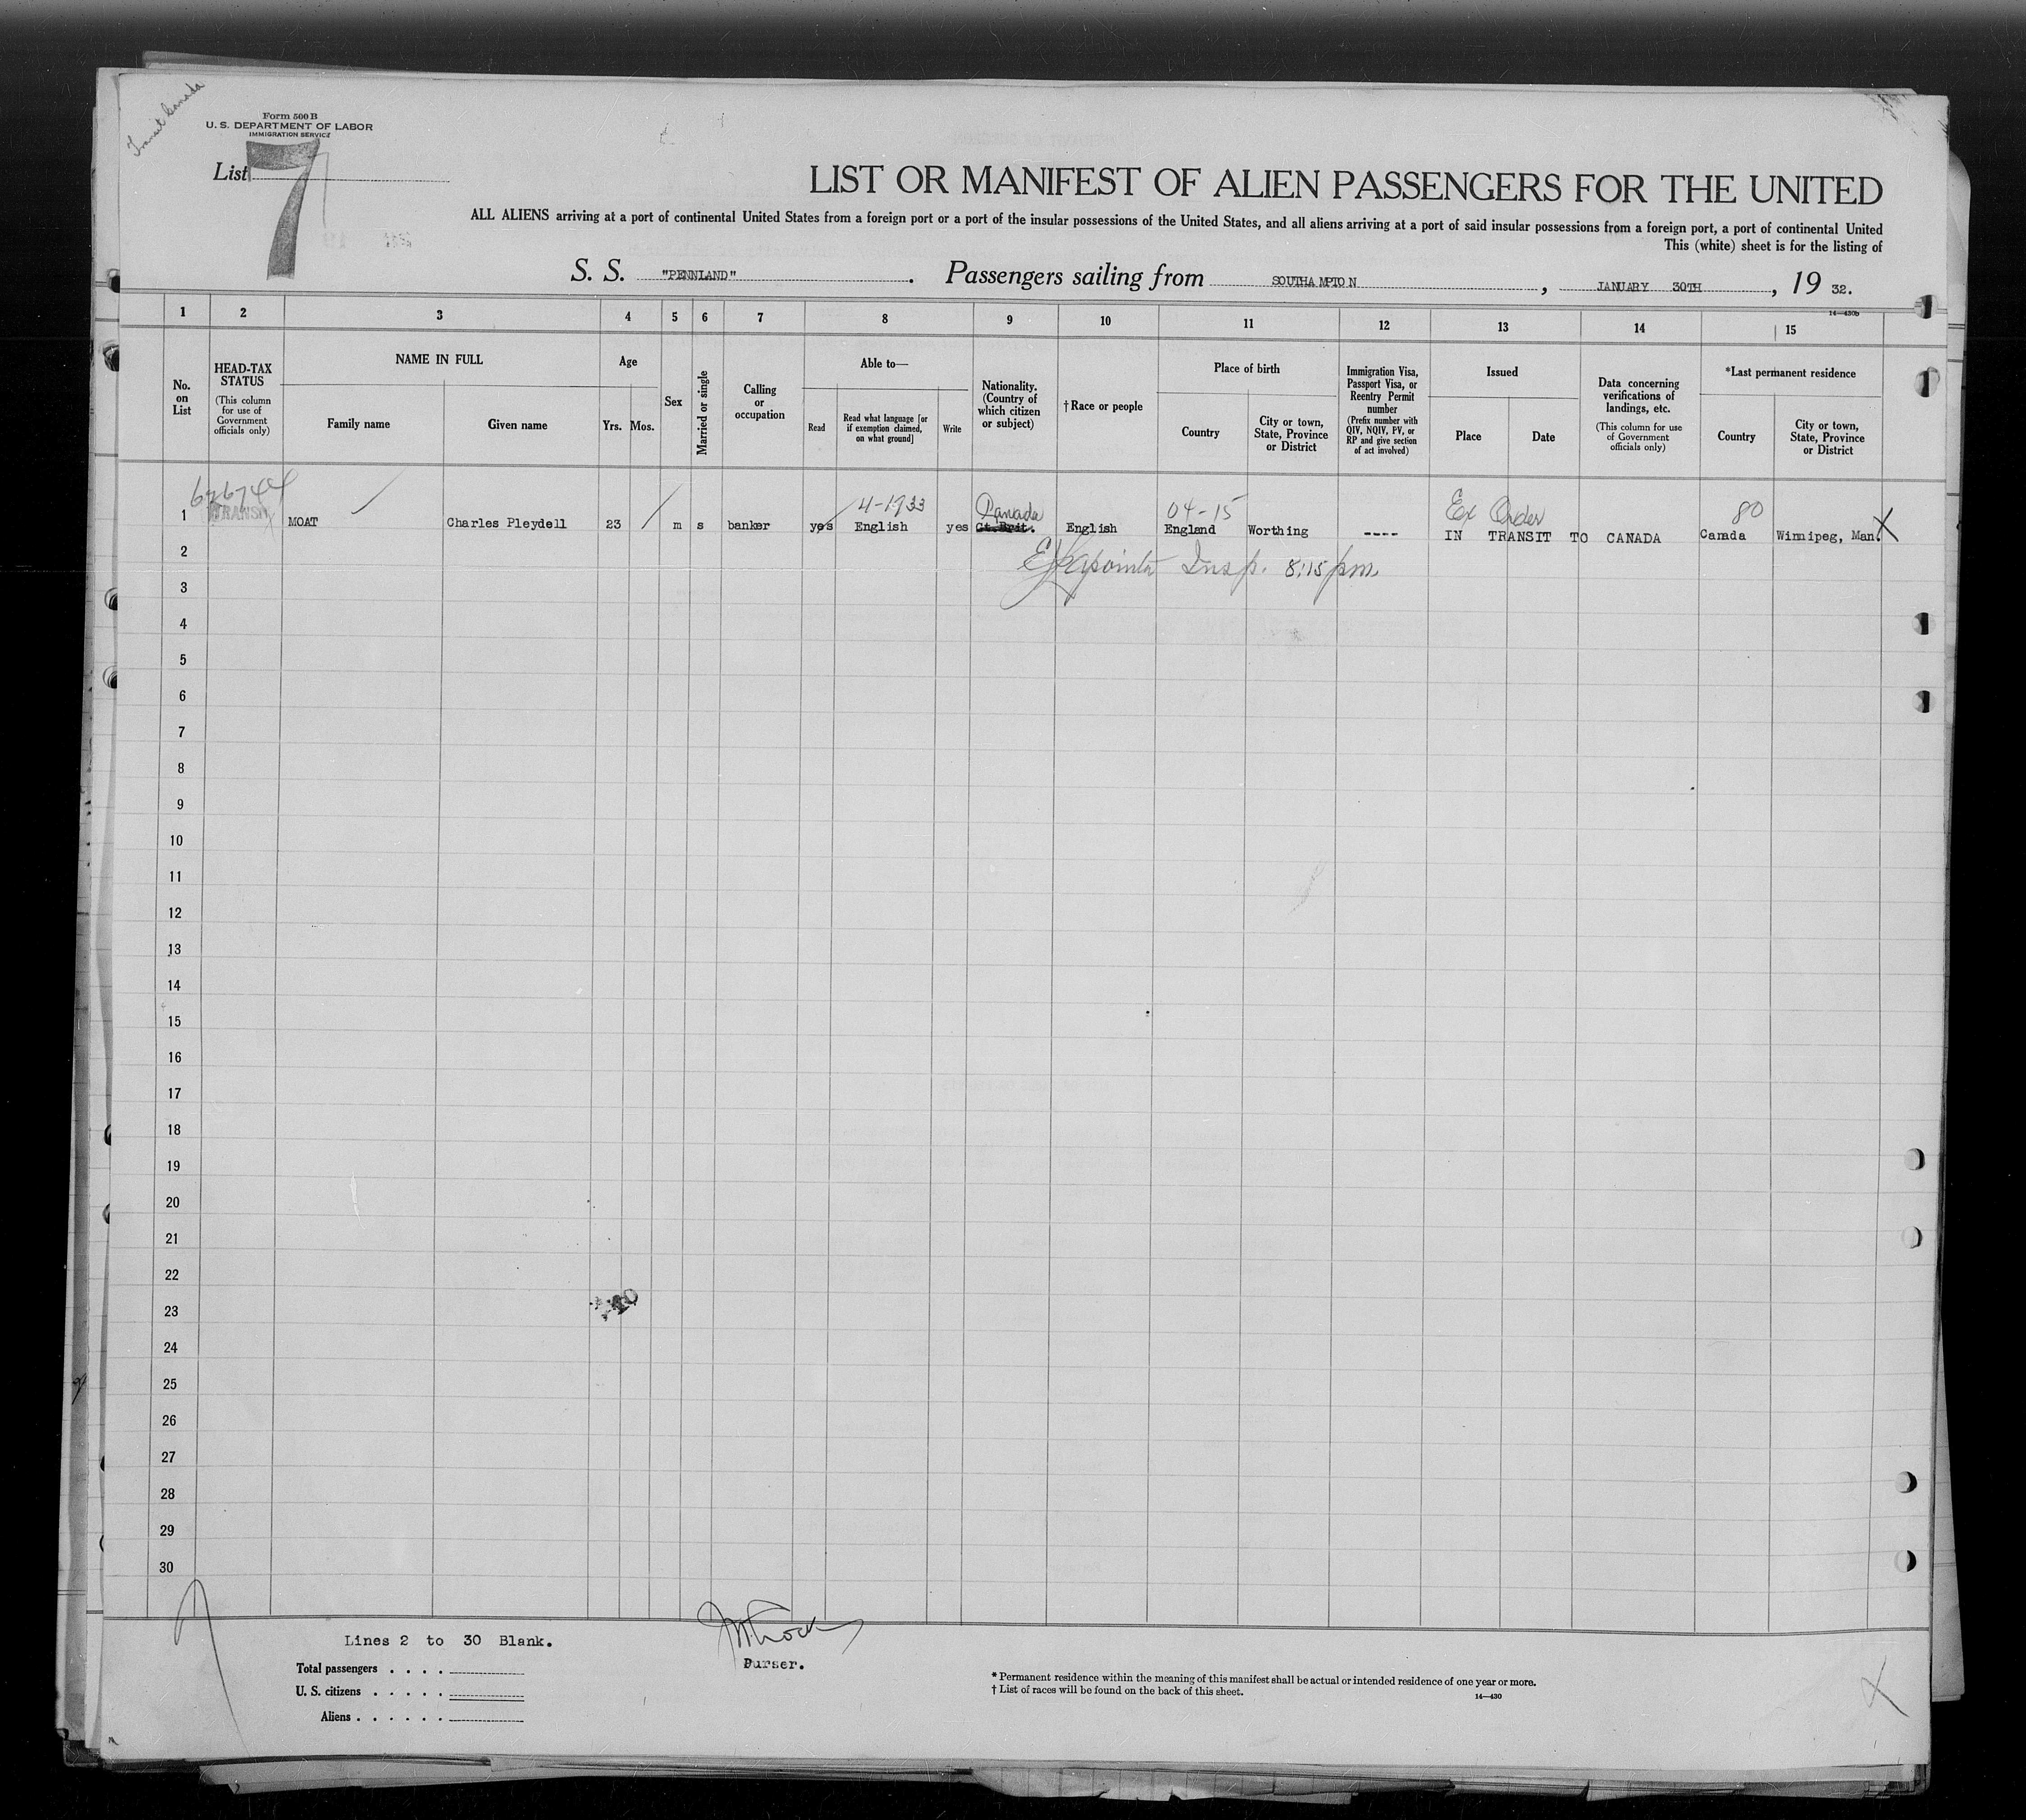 Transit Canada
Form 500 B
U. S. DEPARTMENT OF LABOR
IMMIGRATION SERVICE
List 7
LIST OR MANIFEST OF ALIEN PASSENGERS FOR THE UNITED
ALL ALIENS arriving at a port of continental United States from a foreign port or a port of the insular possessions of the United States, and all aliens arriving at a port of said insular possessions from a foreign port, a port of continental United
This (white) sheet is for the listing of
S. S. "PENNLAND". Passengers sailing from SOUTHAMPTON, JANUARY 30TH, 19 32.
14—430b
1 2 3 4 5 6 7 8 9 10 11 12 13 14 15
No. on List
HEAD-TAX STATUS
(This column for use of Government officials only)
NAME IN FULL
Family name
Given name
Age
Yrs. Mos.
Sex
Married or single
Calling or occupation
Able to—
Read
Read what language [or if exemption claimed, on what ground]
Write
Nationality. (Country of which citizen or subject)
†Race or people
Place of birth
Country
City or town, State, Province or District
Immigration Visa, Passport Visa, or Reentry Permit number
(Prefix number with QIV, NQIV, PV, or RP and give section of act involved)
Issued
Place
Date
Data concerning verifications of landings, etc.
(This column for use of Government officials only)
*Last permanent residence
Country
City or town, State, Province or District
4-1933 Canada 04-15 Ex Order 80
1 TRANSIT MOAT Charles Pleydell 23 m s banker yes English yes Gt. Brit. English England Worthing ---- IN TRANSIT TO CANADA Canada Winnipeg, Man. X
2 Insp. 8:15 pm
3
4
5
6
7
8
9
10
11
12
13
14
15
16
17
18
19
20
21
22
23
24
25
26
27
28
29
30
Lines 2 to 30 Blank.
Purser.
Total passengers . . . .
U. S. citizens . . . . .
Aliens . . . . . .
* Permanent residence within the meaning of this manifest shall be actual or intended residence of one year or more.
† List of races will be found on the back of this sheet.
14—430
X